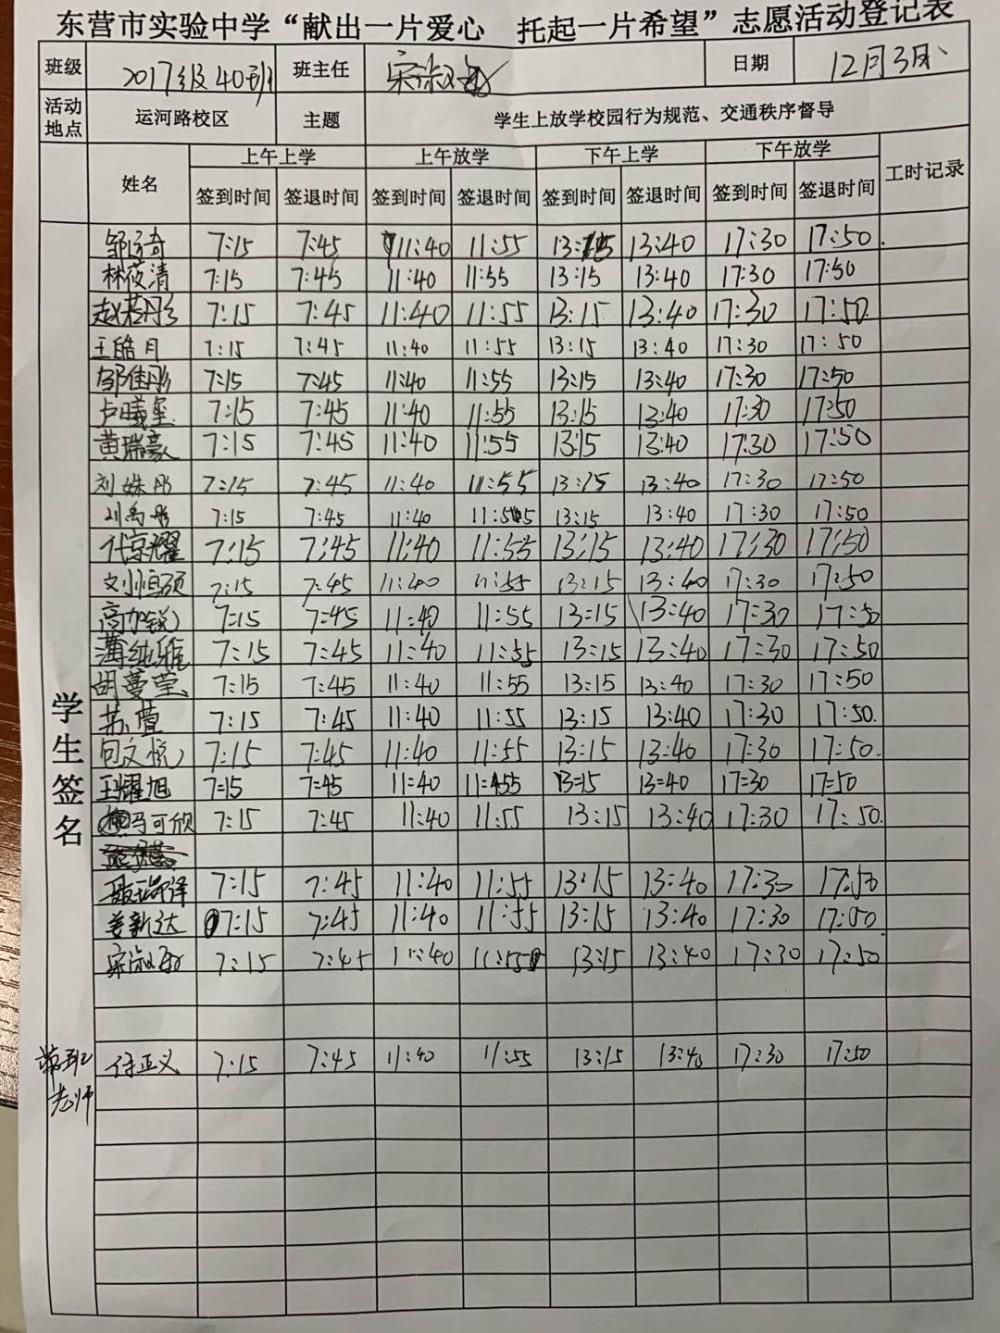 东营市实验中学“献出一片爱心 托起一片希望”志愿活动登记表
班级 2017级40班 班主任 宋淑敏 日期 12月3日
活动地点 运河路校区 主题 学生上放学校园行为规范、交通秩序督导
姓名 上午上学 上午放学 下午上学 下午放学 工时记录
签到时间 签退时间 签到时间 签退时间 签到时间 签退时间 签到时间 签退时间
学生签名
7:15 7:45 11:40 11:55 13:15 13:40 17:30 17:50
林筱清 7:15 7:45 11:40 11:55 13:15 13:40 17:30 17:50
赵若彤 7:15 7:45 11:40 11:55 13:15 13:40 17:30 17:50
王皓月 7:15 7:45 11:40 11:55 13:15 13:40 17:30 17:50
邹佳彤 7:15 7:45 11:40 11:55 13:15 13:40 17:30 17:50
卢曦玺 7:15 7:45 11:40 11:55 13:15 13:40 17:30 17:50
黄瑞豪 7:15 7:45 11:40 11:55 13:15 13:40 17:30 17:50
刘姝彤 7:15 7:45 11:40 11:55 13:15 13:40 17:30 17:50
7:15 7:45 11:40 11:55 13:15 13:40 17:30 17:50
代京耀 7:15 7:45 11:40 11:55 13:15 13:40 17:30 17:50
刘恒硕 7:15 7:45 11:40 11:55 13:15 13:40 17:30 17:50
高加锐 7:15 7:45 11:40 11:55 13:15 13:40 17:30 17:50
薄纯雅 7:15 7:45 11:40 11:55 13:15 13:40 17:30 17:50
胡蔓莹 7:15 7:45 11:40 11:55 13:15 13:40 17:30 17:50
苏萱 7:15 7:45 11:40 11:55 13:15 13:40 17:30 17:50.
包文悦 7:15 7:45 11:40 11:55 13:15 13:40 17:30 17:50.
王耀旭 7:15 7:45 11:40 11:55 13:15 13:40 17:30 17:50
马可欣 7:15 7:45 11:40 11:55 13:15 13:40 17:30 17:50.
7:15 7:45 11:40 11:55 13:15 13:40 17:30 17:50
姜新达 7:15 7:45 11:40 11:55 13:15 13:40 17:30 17:50
宋淑敏 7:15 7:45 11:40 11:55 13:15 13:40 17:30 17:50
带班老师 徐正义 7:15 7:45 11:40 11:55 13:15 13:40 17:30 17:50